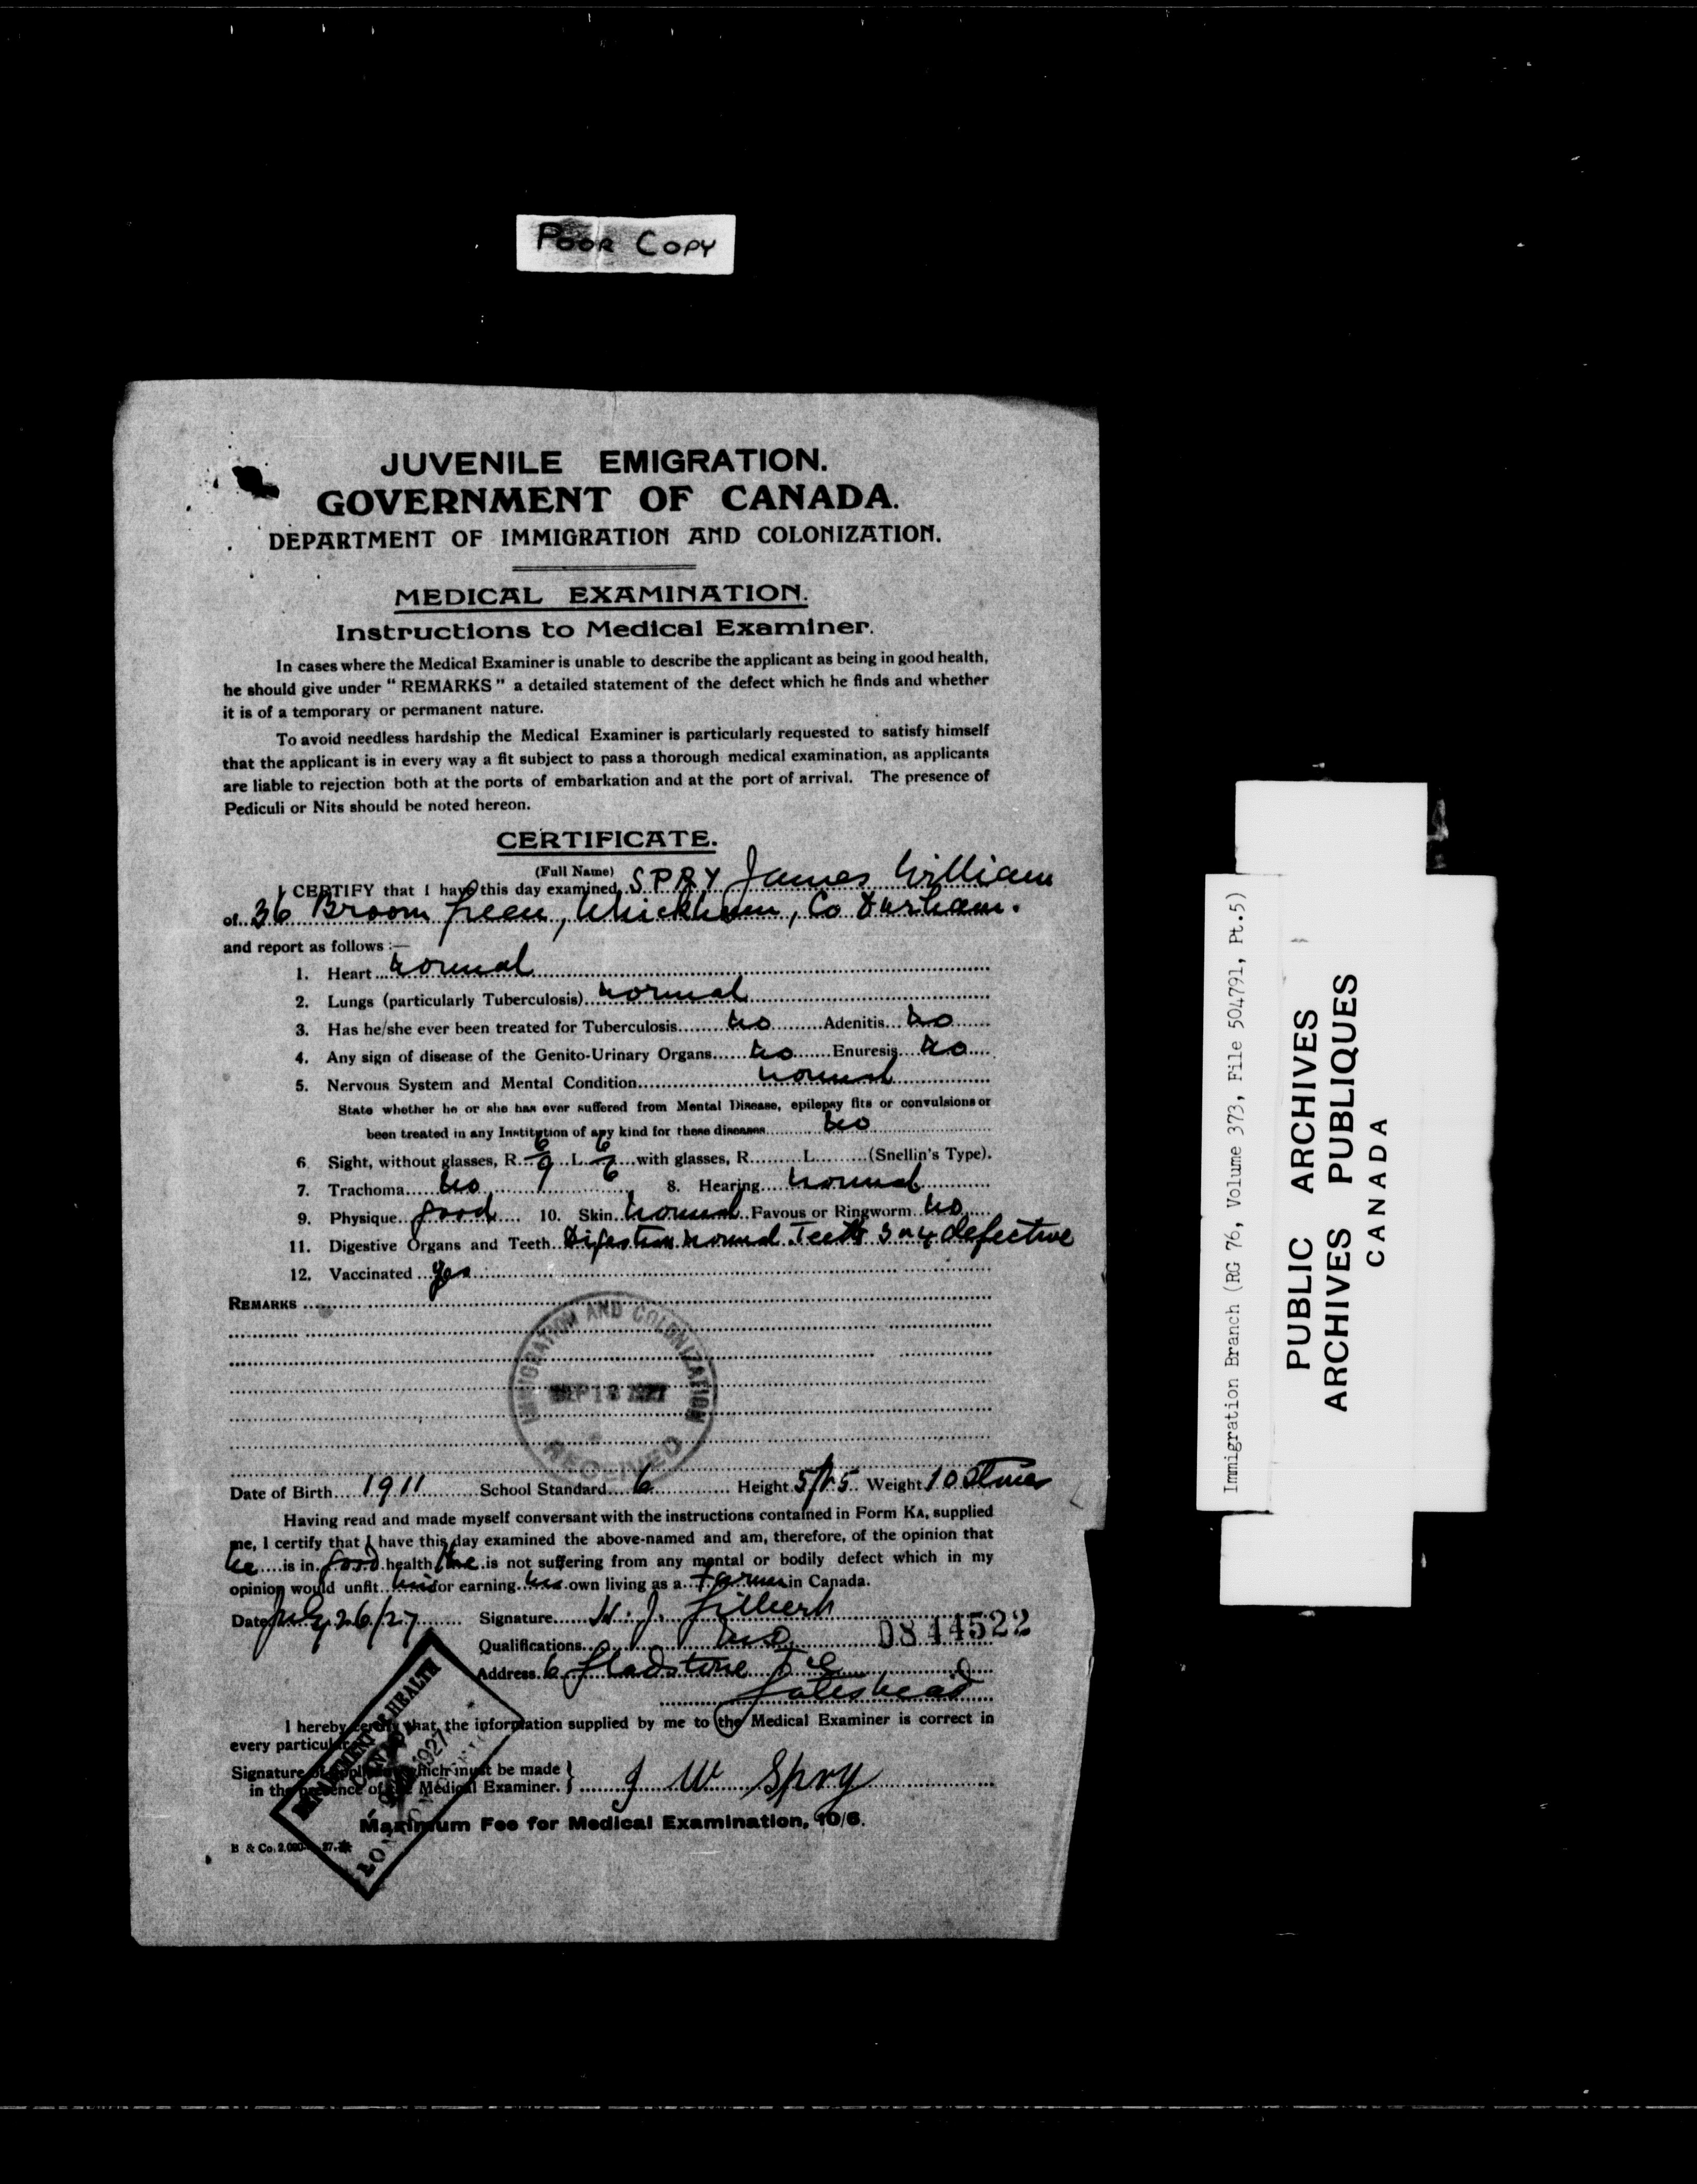 POOR COPY
JUVENILE EMIGRATION.
GOVERNMENT OF CANADA.
DEPARTMENT OF IMMIGRATION AND COLONIZATION.
MEDICAL EXAMINATION.
Instructions to Medical Examiner.
In cases where the Medical Examiner is unable to describe the applicant as being in good health,
he should give under "REMARKS" a detailed statement of the defect which he finds and whether
it is of a temporary or permanent nature.
To avoid needless hardship the Medical Examiner is particularly requested to satisfy himself
that the applicant is in every way a fit subject to pass a thorough medical examination, as applicants
are liable to rejection both at the ports of embarkation and at the port of arrival. The presence of
Pediculi or Nits should be noted hereon.
CERTIFICATE.
(Full Name)
I CERTIFY that I have this day examined SPRY James William
of 36 Broom Green, Whickham, Co Durham.
and report as follows :—
1. Heart normal
2. Lungs (particularly Tuberculosis) normal
3. Has he/she ever been treated for Tuberculosis no Adenitis no
4. Any sign of disease of the Genito-Urinary Organs no Enuresis no
5. Nervous System and Mental Condition normal
State whether he or she has ever suffered from Mental Disease, epilepsy fits or convulsions or
been treated in any Institution of any kind for these diseases no
6. Sight, without glasses, R. 6/9 L. 6/6 with glasses, R. L. (Snellin's Type).
7. Trachoma no 8. Hearing normal
9. Physique good 10. Skin normal Favous or Ringworm no
11. Digestive Organs and Teeth Digestion normal Teeth 3 or 4 defective
12. Vaccinated yes
REMARKS
IMMIGRATION AND COLONIZATION
SEP 13 1927
RECEIVED
Date of Birth 1911 School Standard 6 Height 5ft 5 Weight 10 Stones
Having read and made myself conversant with the instructions contained in Form KA, supplied
me, I certify that I have this day examined the above-named and am, therefore, of the opinion that
he is in good health he is not suffering from any mental or bodily defect which in my
opinion would unfit him for earning his own living as a Farmer in Canada.
Date July 26/27 Signature H. J. Gilbert
Qualifications MD 0844522
Address 6 Gladstone Tce
Gateshead
I hereby certify that the information supplied by me to the Medical Examiner is correct in
every particular.
Signature of applicant which must be made
in the presence of the Medical Examiner. } J W Spry
DEPARTMENT OF HEALTH
CANADA
1927
LONDON
Maximum Fee for Medical Examination, 10/6.
B & Co. 2,000 27.
Immigration Branch (RG 76, Volume 373, File 504791, Pt.5)
PUBLIC ARCHIVES
ARCHIVES PUBLIQUES
CANADA